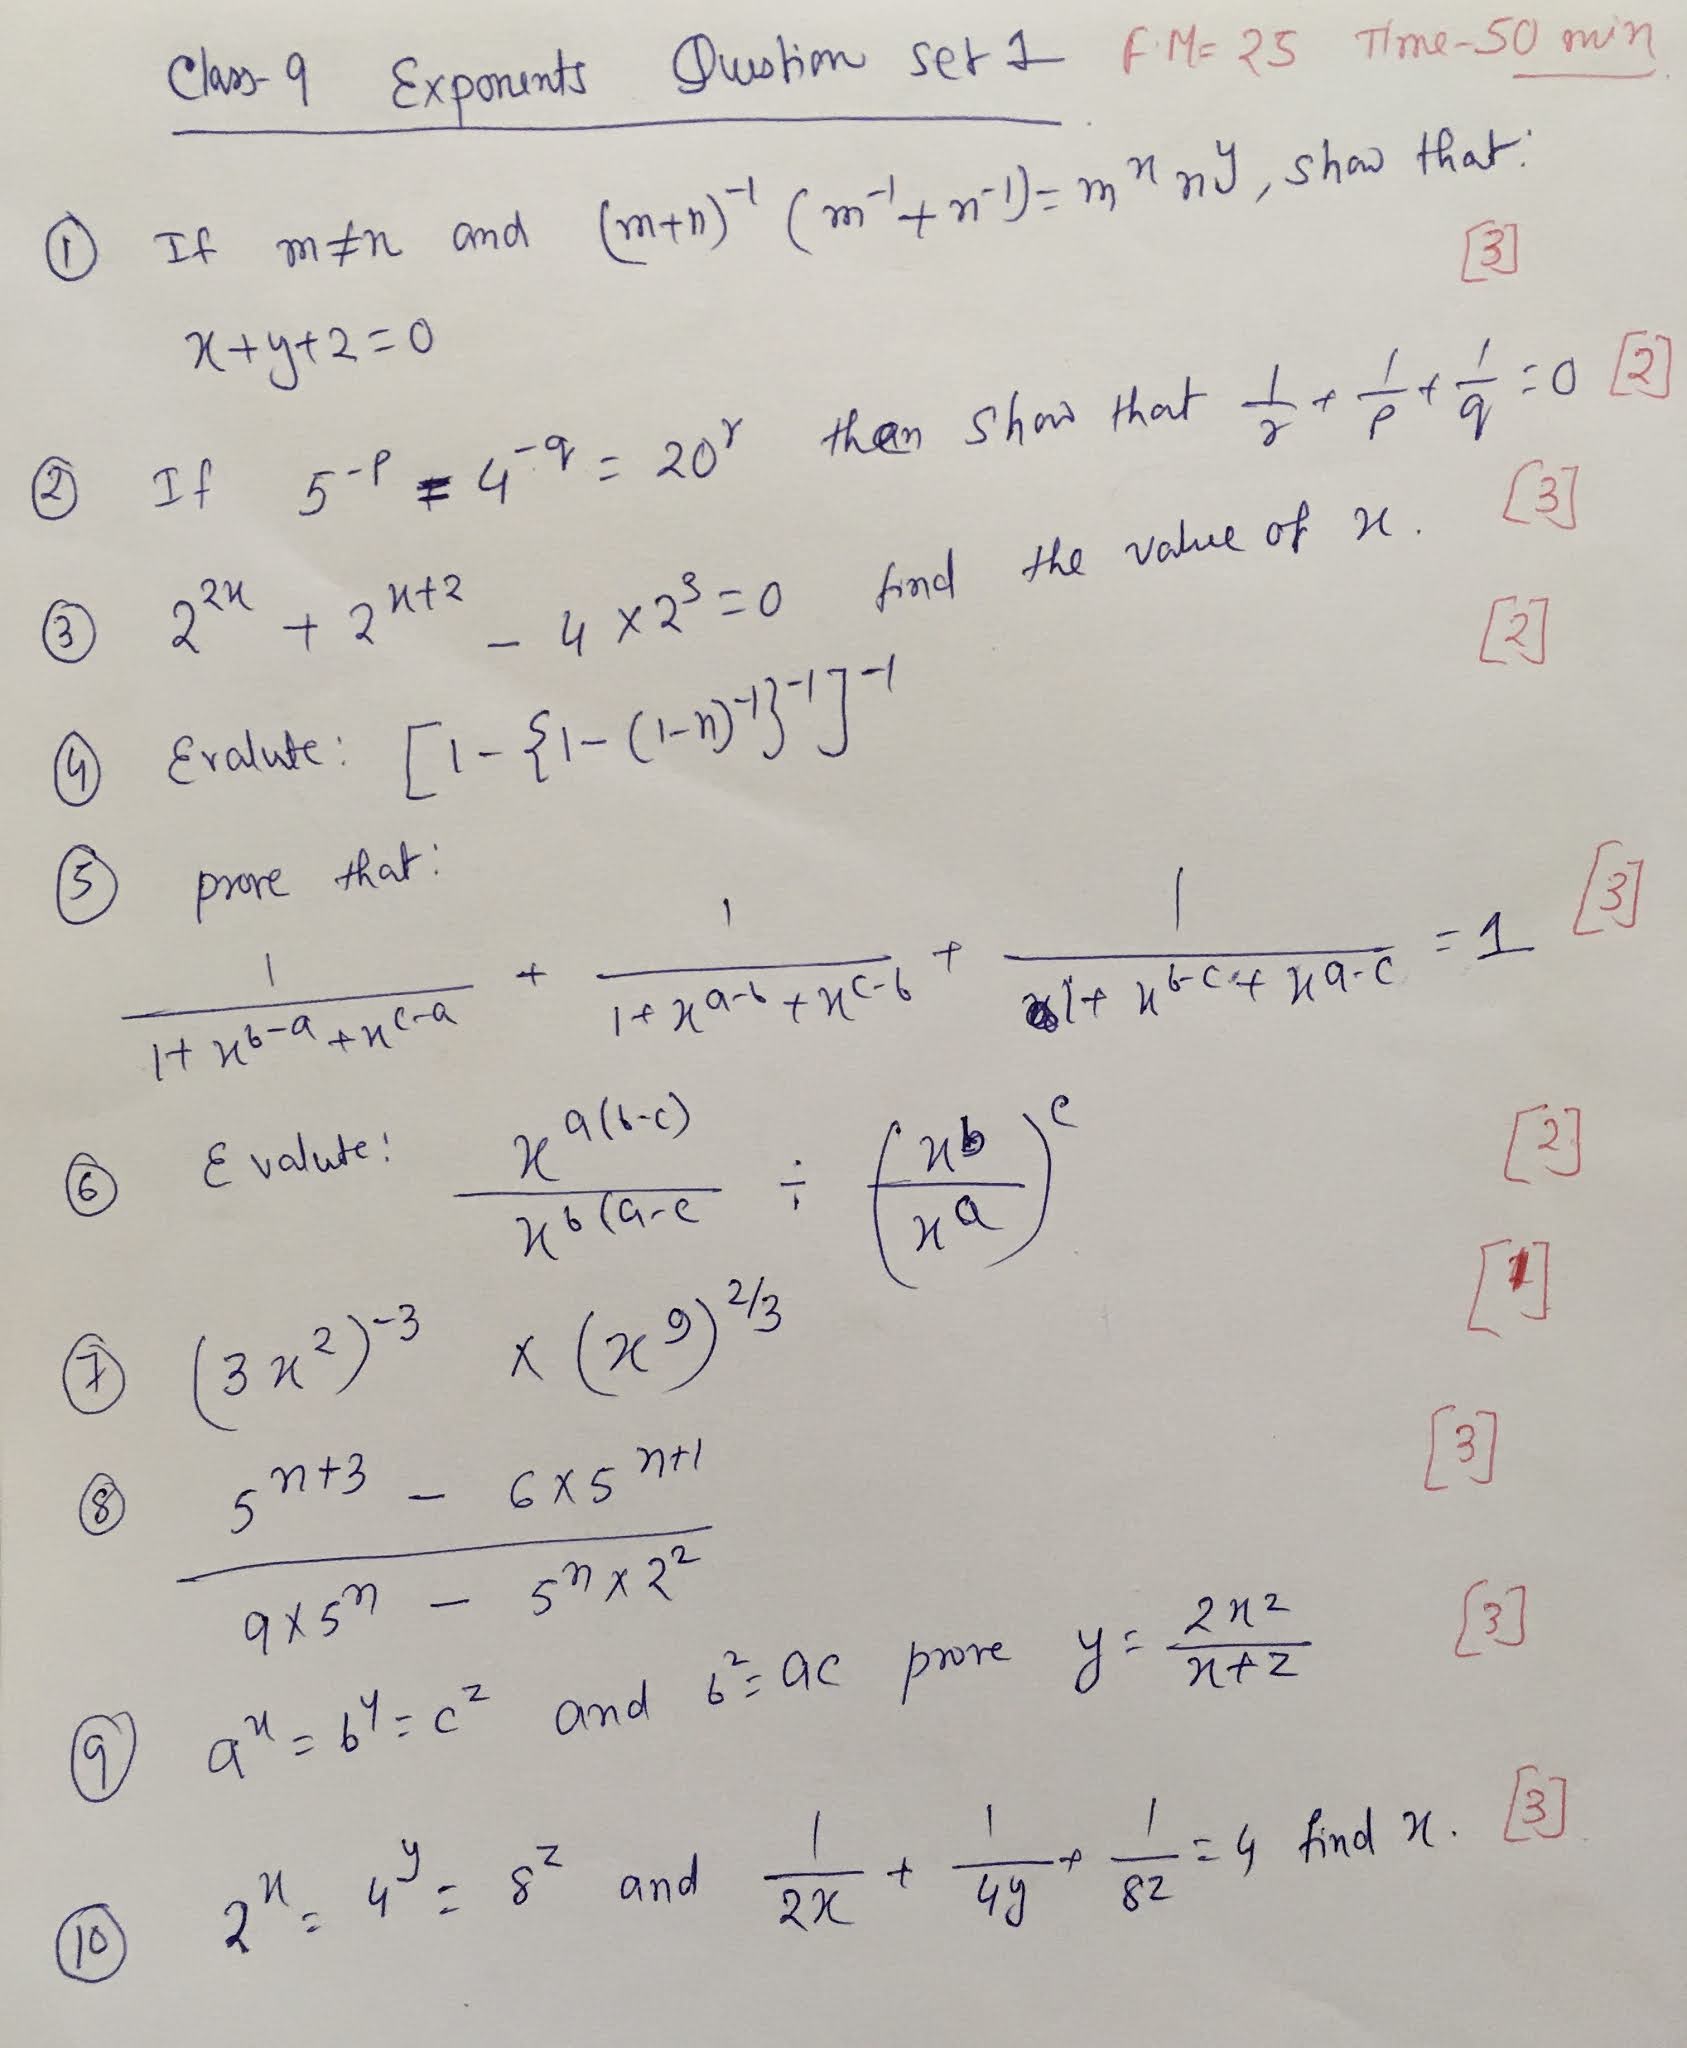 Class-9 Exponents Question set 1 F.M= 25 Time-50 min
① If m≠n and (m+n)⁻¹ (m⁻¹+n⁻¹)= mˣ nʸ, show that: [3]
x+y+2=0
② If 5^-p = 4^-q = 20^r then show that 1/r + 1/p + 1/q = 0 [2]
③ 2^2x + 2^x+2 - 4 x 2^3 = 0 find the value of x. [3]
④ Evalute: [1-{1-(1-n)⁻¹}⁻¹]⁻¹ [2]
⑤ prove that:
1/(1+x^b-a+x^c-a) + 1/(1+x^a-b+x^c-b) + 1/(1+x^b-c+x^a-c) = 1 [3]
⑥ Evalute: x^a(b-c) / x^b(a-c ÷ (x^b/x^a)^c [2]
⑦ (3x²)⁻³ x (x⁹)^2/3 [1]
⑧ 5^n+3 - 6x5^n+1 [3]
9x5^n - 5^n x 2²
⑨ a^x = b^y = c^z and b²= ac prove y = 2xz/(x+z) [3]
⑩ 2^x = 4^y = 8^z and 1/2x + 1/4y + 1/8z = 4 find x. [3]